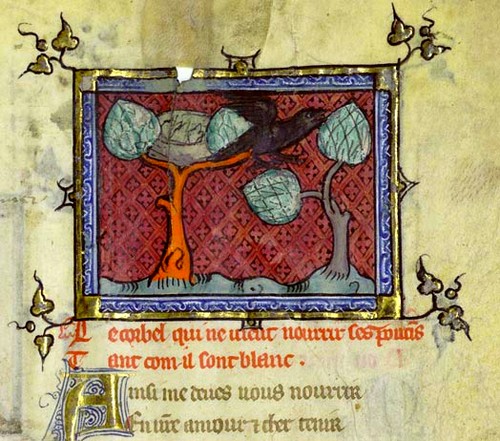 Le corbel qui ne ueut nourrir ses poucins
Tant com il sont blanc .
Ainsi me deues uous nourrir
En ure amour ⁊ chier tenir